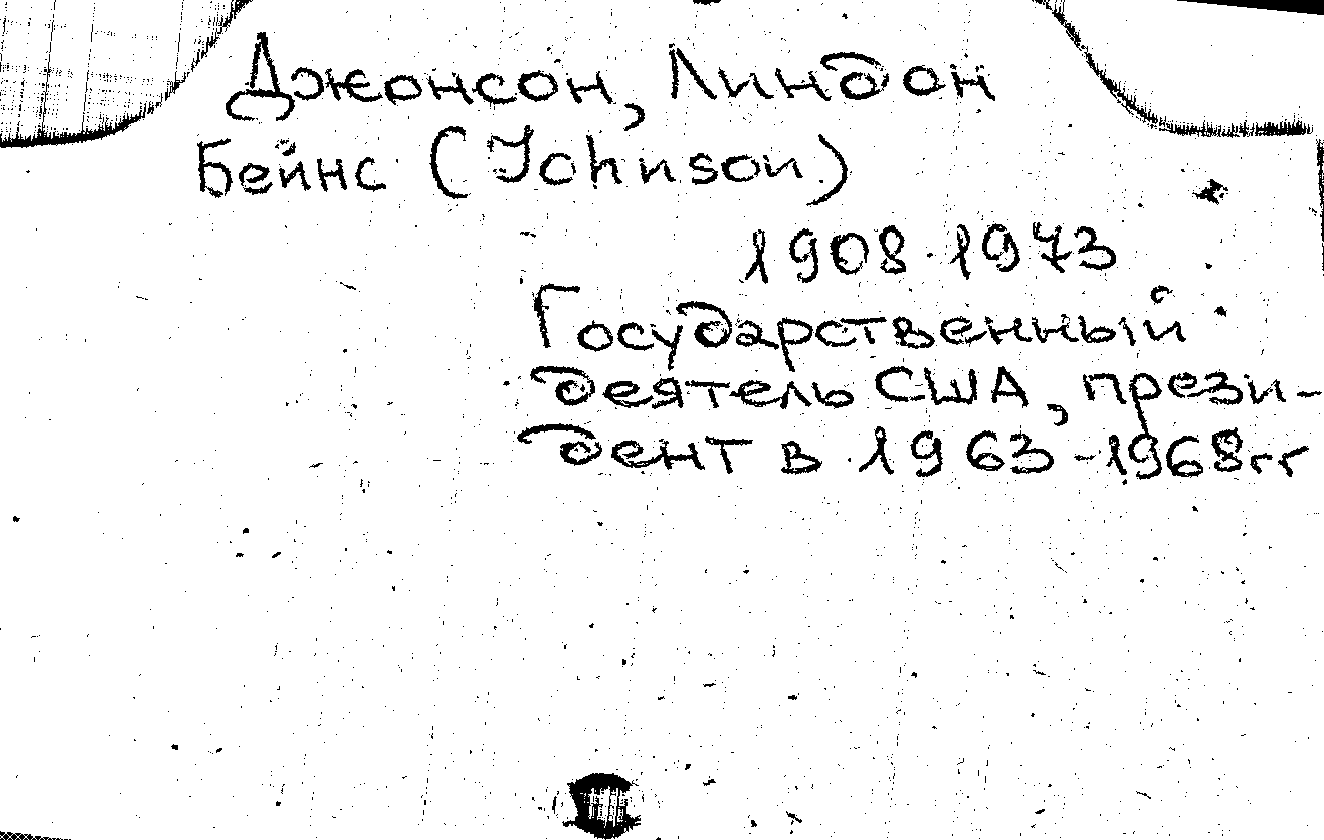 Джонсон, Линдон
Бейнс (Johnson)
1908-1973
Государственный
деятель США, прези-
дент в 1963-1968гг